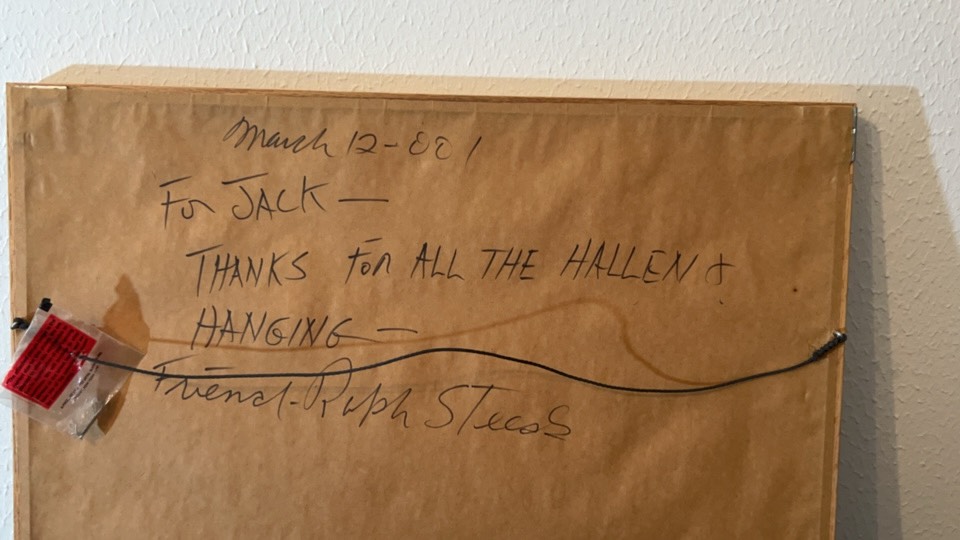 March 12-88/
For JACK —
THANKS FOR ALL THE HALLEN &
HANGING —
Friend - Ralph